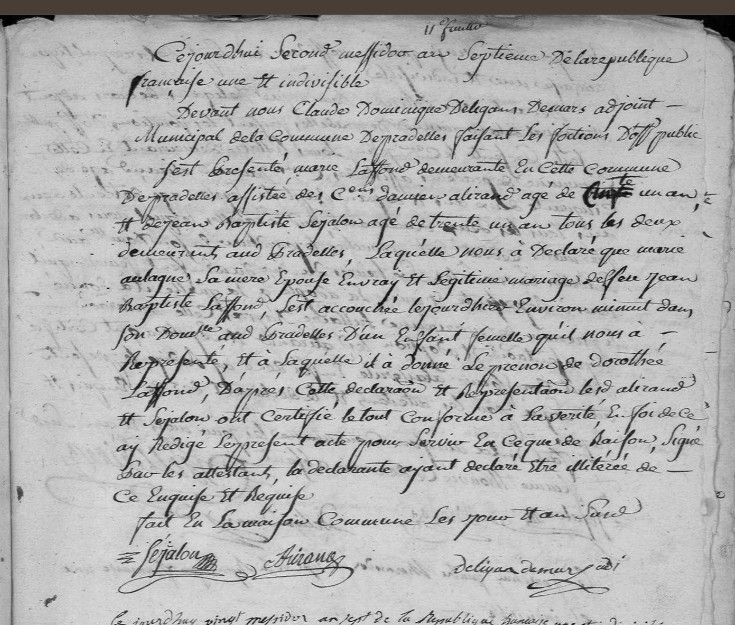 Cejourdhui Second messidor an Septieme De la republique
francaise une Et indivisible
Devant nous Claude Dominique Deligans Demars adjoint —
Municipal de la Commune Depradelles faisant Les foctions D'off public
s'est Presentée marie Laffond demeurante En Cette Commune
Depradelles assistée des C.ens damien alirand agé de un an
Et de jean Baptiste Sejalon agé de trente un an tous les deux
demeurants aud Pradelles, Laquelle nous à Declaré que marie
aulagne Sa mere Epouse En vray Et Legitime mariage de feu Jean
Baptiste Laffond, s'est accouchée cejourdhui Environ minuit dans
son Dom.lle aud Pradelles D'un Enfant femelle qu'il nous à —
Représenté, Et à Laquelle il à donné Le prenon de dorothée
Laffond, Dapres Cette declaraôn Et Representaôn lesd alirand
Et Sejalon ont Certifié le tout Conforme à La verité, En foi de Ce
ay Redigé Le present acte pour Servir En Ce que de Raison, Signé
Par les attestants, la declarante ayant declaré Etre illitérée de —
Ce Enquise Et Requise
fait En La maison Commune Les jour Et an Susd
Sejalon Alirand deligans demars adj
Cejourdhuy vingt messidor an sept de la Republique francaise